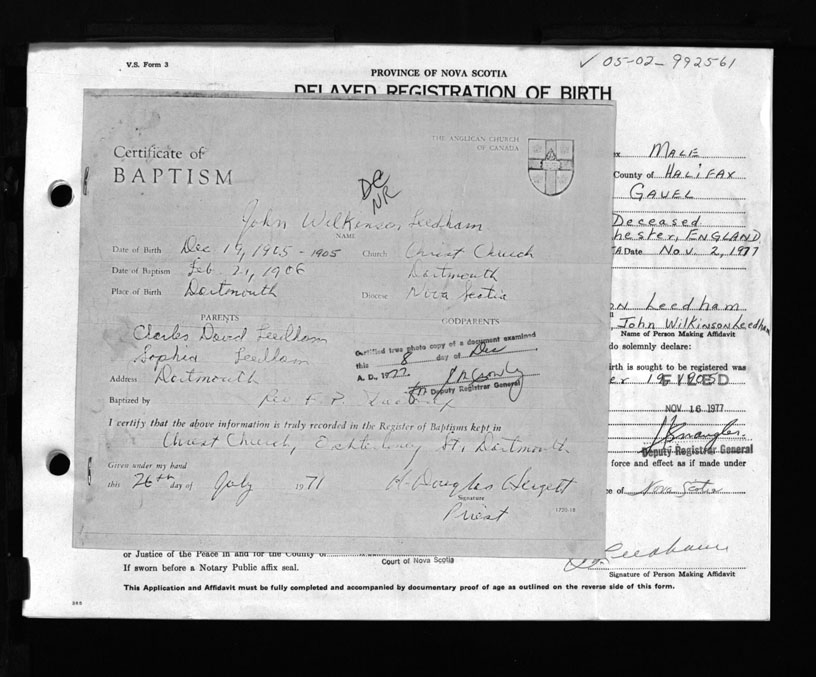 V.S. Form 3
✓ 05-02-992561
PROVINCE OF NOVA SCOTIA
DELAYED REGISTRATION OF BIRTH
MALE
County of HALIFAX
GAVEL
Deceased
hester, ENGLAND
Date Nov. 2, 1977
on Leedham
, John Wilkinson Leedham
Name of Person Making Affidavit
do solemnly declare:
irth is sought to be registered was
NOV 16 1977
Deputy Registrar General
force and effect as if made under
ce of Nova Scotia
THE ANGLICAN CHURCH
OF CANADA
Certificate of
BAPTISM
DC
NR
John Wilkinson Leedham
NAME
Date of Birth Dec 19, 1905 - 1905 Church Christ Church
Date of Baptism Feb. 21, 1906 Dartmouth
Place of Birth Dartmouth Diocese Nova Scotia
PARENTS GODPARENTS
Charles David Leedham
Sophia Leedham
Certified true photo copy of a document examined
this 8 day of Dec
A. D., 1977
Deputy Registrar General
Address Dartmouth
Baptized by Rev F. P.
I certify that the above information is truly recorded in the Register of Baptisms kept in
Christ Church, St., Dartmouth
Given under my hand
this 26th day of July 1971
H. Douglas
Signature
Priest
or Justice of the Peace in and for the County of
Court of Nova Scotia
If sworn before a Notary Public affix seal.
Leedham
Signature of Person Making Affidavit
This Application and Affidavit must be fully completed and accompanied by documentary proof of age as outlined on the reverse side of this form.